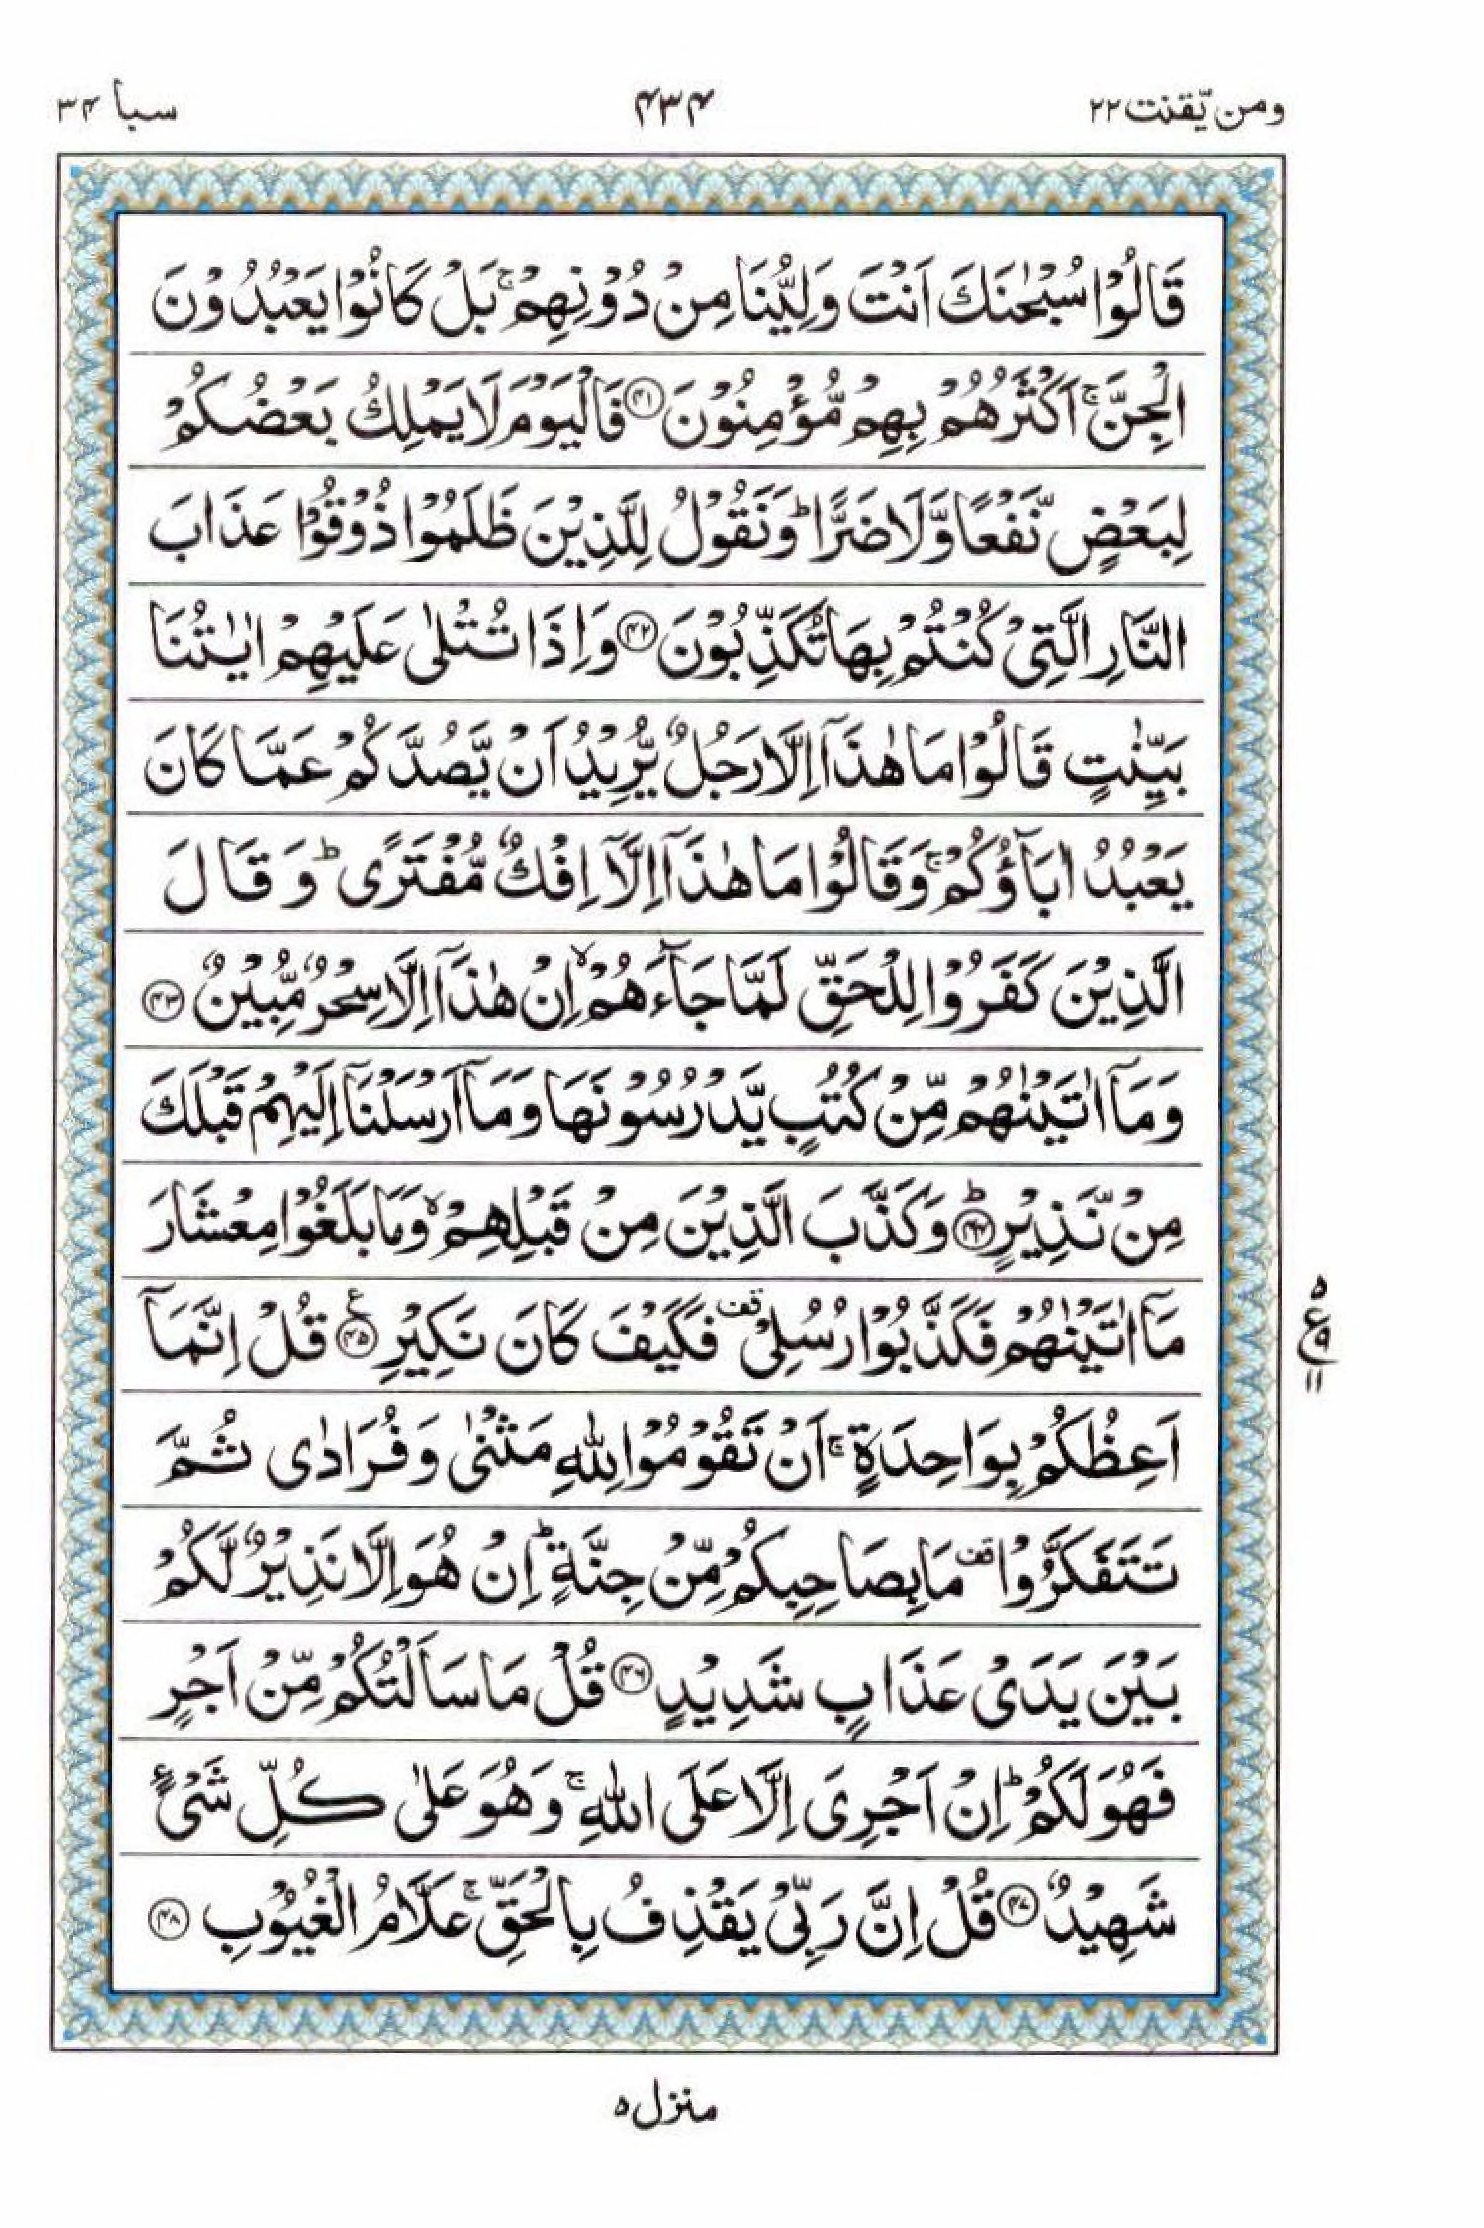 ومن يّقنت ٢٢
۴۳۴
سبا ۳۴
قَالُوْا سُبْحٰنَكَ اَنْتَ وَلِيُّنَا مِنْ دُوْنِهِمْ ۚ بَلْ كَانُوْا يَعْبُدُوْنَ
الْجِنَّ ۚ اَكْثَرُهُمْ بِهِمْ مُّؤْمِنُوْنَ ﴿۴۱﴾ فَالْيَوْمَ لَا يَمْلِكُ بَعْضُكُمْ
لِبَعْضٍ نَّفْعًا وَّلَا ضَرًّا ؕ وَنَقُوْلُ لِلَّذِيْنَ ظَلَمُوْا ذُوْقُوْا عَذَابَ
النَّارِ الَّتِيْ كُنْتُمْ بِهَا تُكَذِّبُوْنَ ﴿۴۲﴾ وَاِذَا تُتْلٰى عَلَيْهِمْ اٰيٰتُنَا
بَيِّنٰتٍ قَالُوْا مَا هٰذَآ اِلَّا رَجُلٌ يُّرِيْدُ اَنْ يَّصُدَّكُمْ عَمَّا كَانَ
يَعْبُدُ اٰبَآؤُكُمْ ۚ وَقَالُوْا مَا هٰذَآ اِلَّآ اِفْكٌ مُّفْتَرًى ؕ وَقَالَ
الَّذِيْنَ كَفَرُوْا لِلْحَقِّ لَمَّا جَآءَهُمْ ۙ اِنْ هٰذَآ اِلَّا سِحْرٌ مُّبِيْنٌ ﴿۴۳﴾
وَمَآ اٰتَيْنٰهُمْ مِّنْ كُتُبٍ يَّدْرُسُوْنَهَا وَمَآ اَرْسَلْنَآ اِلَيْهِمْ قَبْلَكَ
مِنْ نَّذِيْرٍ ؕ ﴿۴۴﴾ وَكَذَّبَ الَّذِيْنَ مِنْ قَبْلِهِمْ ۙ وَمَا بَلَغُوْا مِعْشَارَ
مَآ اٰتَيْنٰهُمْ فَكَذَّبُوْا رُسُلِيْ ۫ قف فَكَيْفَ كَانَ نَكِيْرِ ﴿۴۵﴾ ع قُلْ اِنَّمَآ
اَعِظُكُمْ بِوَاحِدَةٍ ۚ اَنْ تَقُوْمُوْا لِلّٰهِ مَثْنٰى وَفُرَادٰى ثُمَّ
تَتَفَكَّرُوْا ۫ قف مَا بِصَاحِبِكُمْ مِّنْ جِنَّةٍ ؕ اِنْ هُوَ اِلَّا نَذِيْرٌ لَّكُمْ
بَيْنَ يَدَيْ عَذَابٍ شَدِيْدٍ ﴿۴۶﴾ قُلْ مَا سَاَلْتُكُمْ مِّنْ اَجْرٍ
فَهُوَ لَكُمْ ؕ اِنْ اَجْرِيَ اِلَّا عَلَى اللّٰهِ ۚ وَهُوَ عَلٰى كُلِّ شَيْءٍ
شَهِيْدٌ ﴿۴۷﴾ قُلْ اِنَّ رَبِّيْ يَقْذِفُ بِالْحَقِّ ۚ عَلَّامُ الْغُيُوْبِ ﴿۴۸﴾
۵
ع ۹
۱۱
منزل ۵